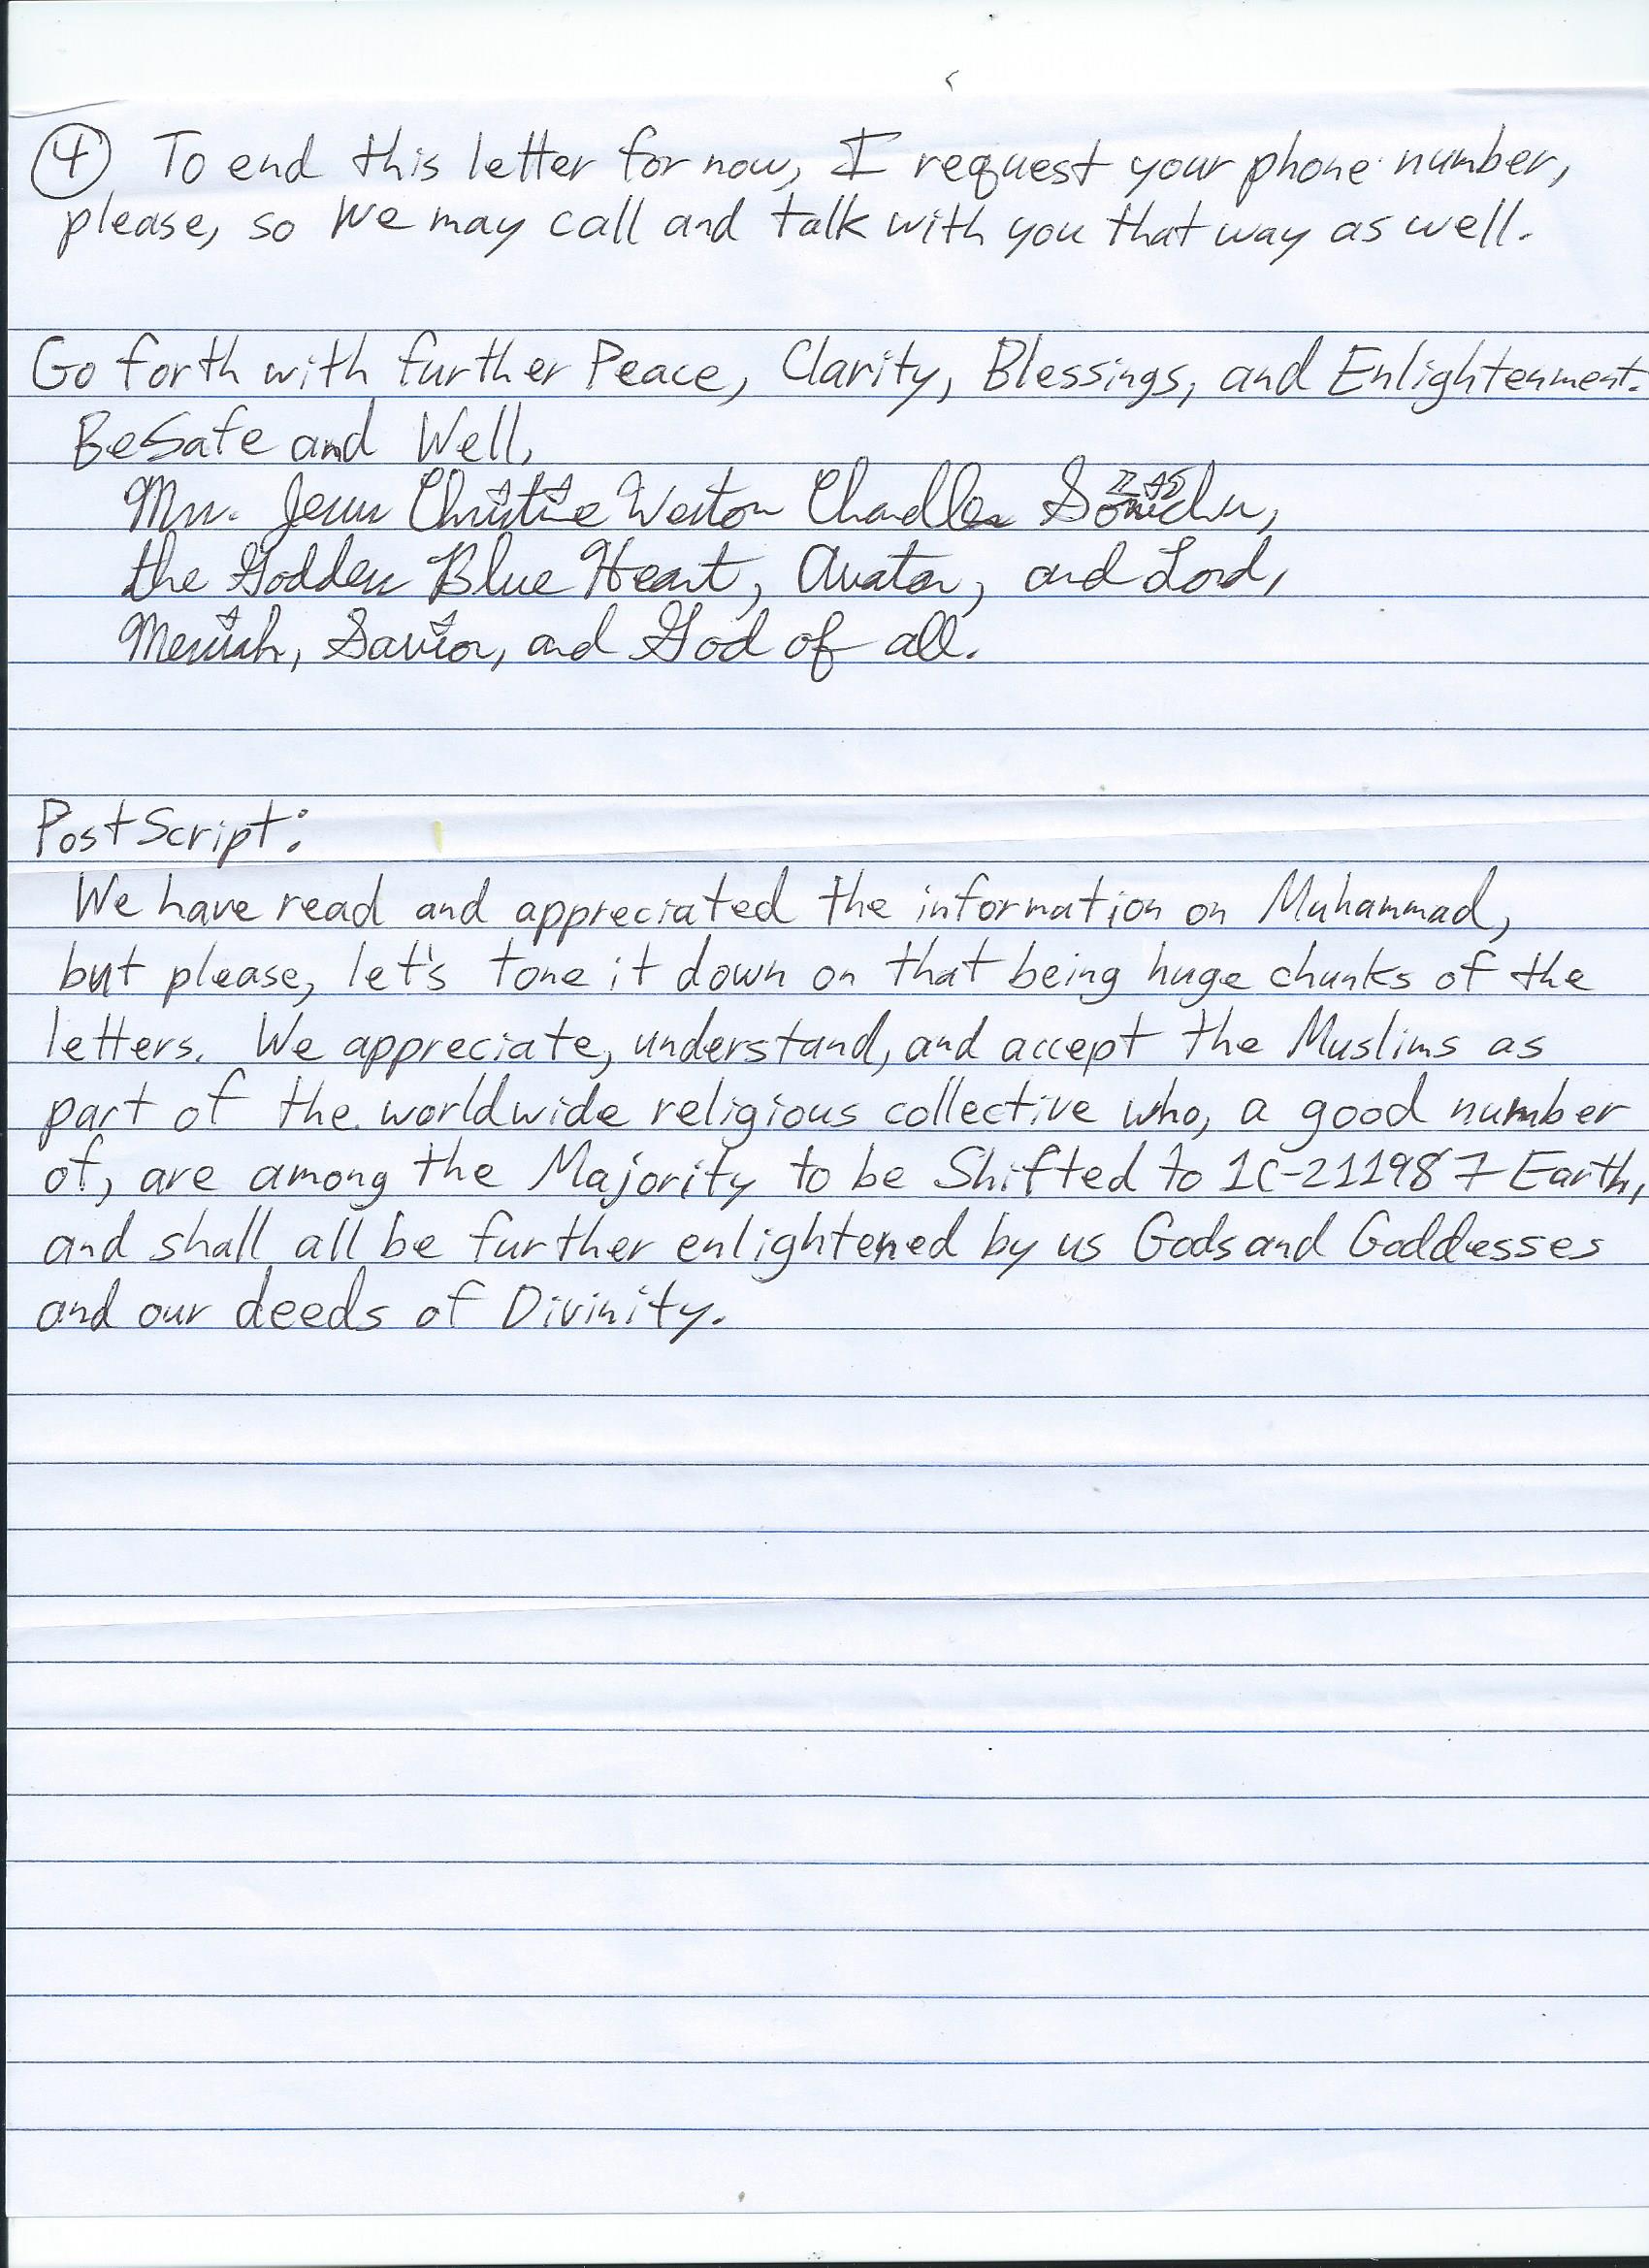 ④ To end this letter for now, I request your phone number,
please, so We may call and talk with you that way as well.
Go forth with further Peace, Clarity, Blessings, and Enlightenment.
Be Safe and Well,
Mrs. Jesus Christine Weston Chandler Sonichu,
the Goddess Blue Heart, Avatar, and Lord,
Messiah, Savior, and God of all.
PostScript:
We have read and appreciated the information on Muhammad,
but please, let's tone it down on that being huge chunks of the
letters. We appreciate, understand, and accept the Muslims as
part of the worldwide religious collective who, a good number
of, are among the Majority to be Shifted to 1C-211987 Earth,
and shall all be further enlightened by us Gods and Goddesses
and our deeds of Divinity.